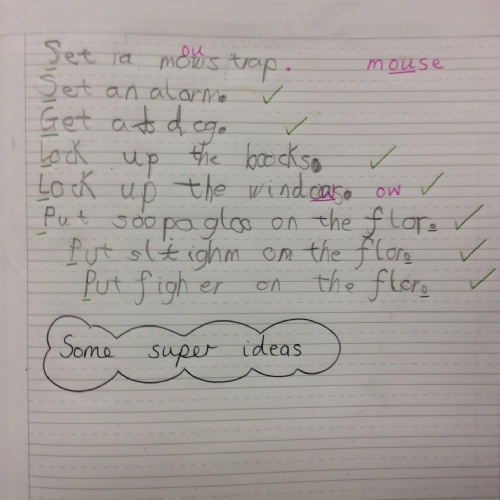 Set a mouws trap. mouse
Set an alarm.
Get a dog.
Lock up the boocks.
Lock up the windcas. ow
Put soopagloo on the flor.
Put slighm on the flor.
Put figher on the flor.
Some super ideas